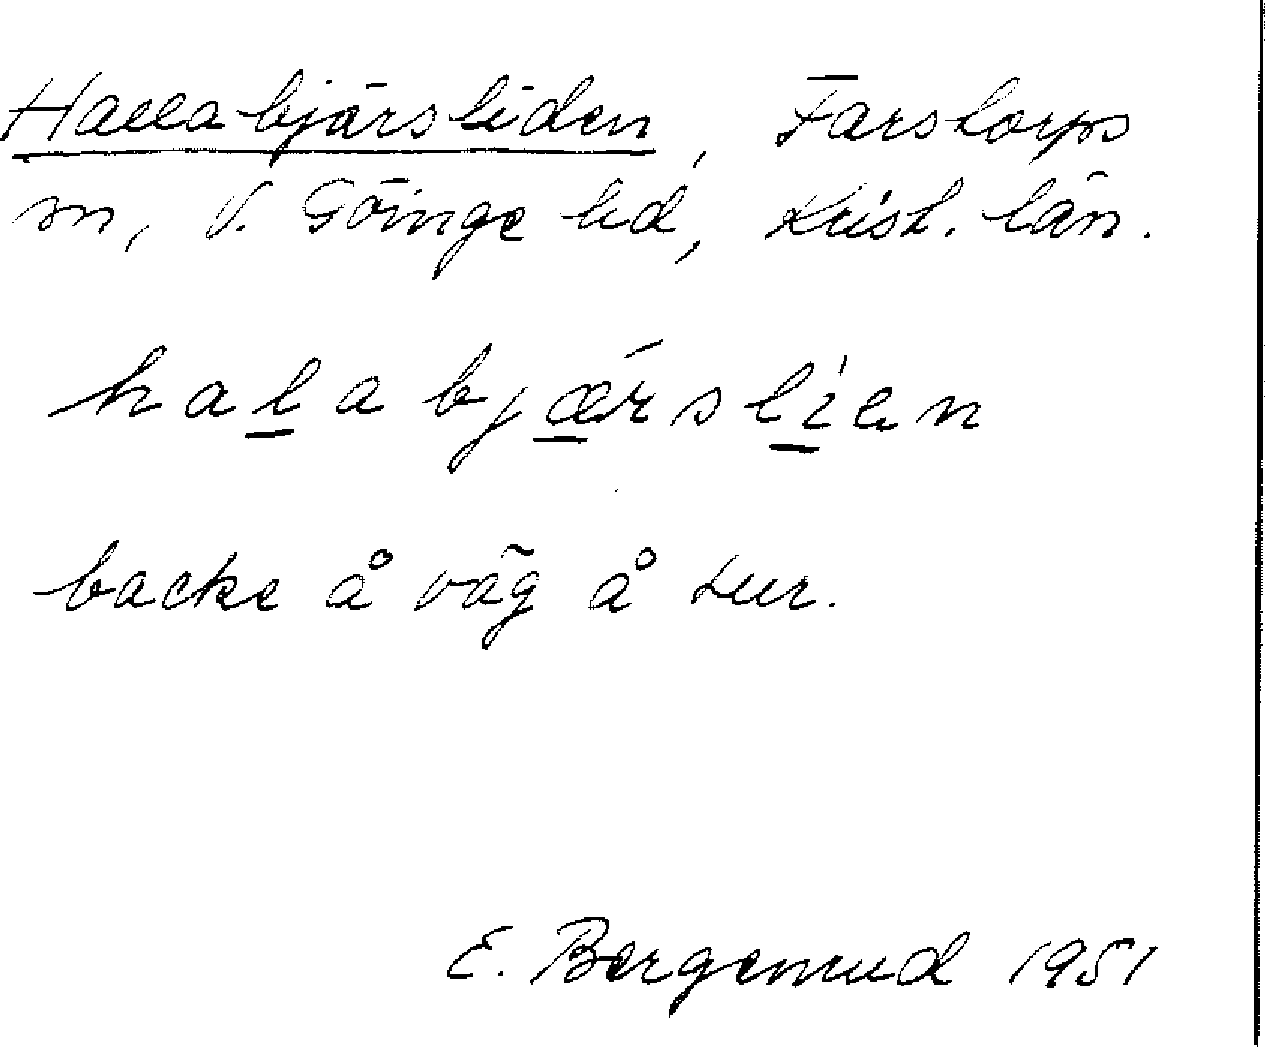 Hallabjärsliden, Farstorps
sn, V. Göinge hd, Krist. län.
halabjǽrslían
backe å väg å
E. Bergemud 1951